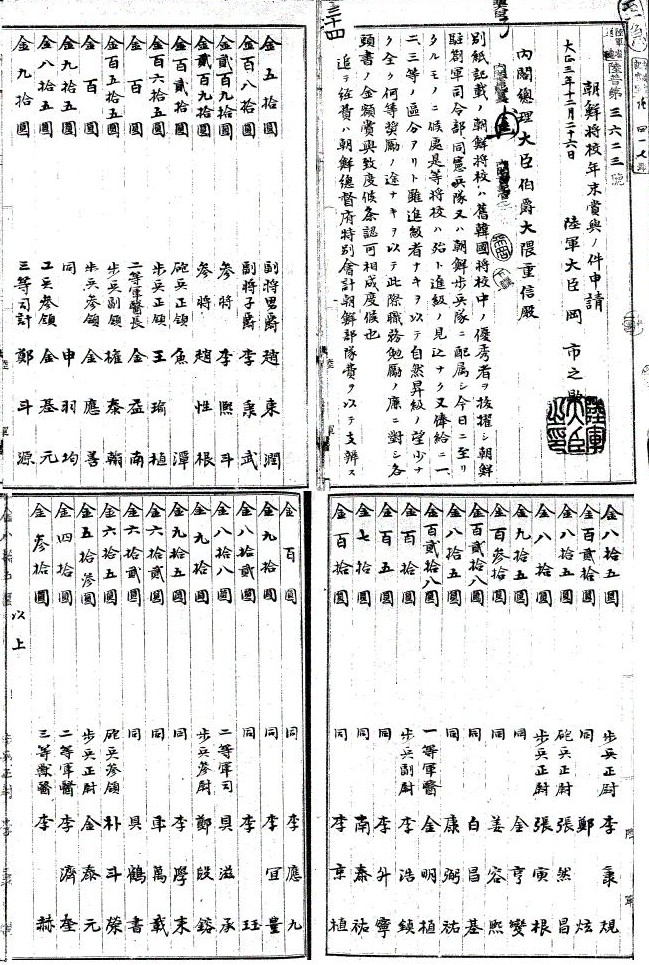 陸普第三六二三號
朝鮮將校年末賞與ノ件申請
大正三年十二月二十六日
陸軍大臣岡市之助
陸軍大臣之印
內閣總理大臣伯爵大隈重信殿
別紙記載ノ朝鮮將校ハ舊韓國將校中ノ優秀者ヲ拔擢シ朝鮮
駐劄軍司令部同憲兵隊又ハ朝鮮步兵隊ニ配属シ今日ニ至リ
タルモノニ候處是等將校ハ殆ト進級ノ見込ナク又俸給ニ一
二三等ノ區分アリト雖進級者ナキヲ以テ自然昇級ノ望少ナ
ク全ク何等奬勵ノ途ナキヲ以テ此際職務勉勵ノ廉ニ對シ各
頭書ノ金額賞與致度候条認可相成度候也
追テ經費ハ朝鮮總督府特別會計朝鮮部隊費ヲ以テ支辨ス
三十四
金五拾圓 副將男爵 趙東潤
金百八拾圓 副將子爵 李秉武
金貳百九拾圓 參將 李熙斗
金貳百九拾圓 參將 趙性根
金百貳拾圓 砲兵正領 魚潭
金百六拾圓 步兵正領 王瑜植
金百圓 二等軍醫長 金益南
金百五拾五圓 步兵副領 權泰翰
金百圓 步兵參領 金應善
金九拾五圓 同 申羽均
金八拾五圓 工兵參領 金基元
金九拾圓 三等司計 鄭斗源
金八拾五圓 步兵正尉 李秉規
金百貳拾圓 同 鄭炫
金八拾五圓 砲兵正尉 張然昌
金八拾圓 步兵正尉 張寅根
金九拾五圓 同 金亨燮
金百參拾圓 同 姜容熙
金百貳拾八圓 同 白昌基
金八拾五圓 同 康弼祐
金百貳拾八圓 一等軍醫 金明植
金百拾圓 步兵副尉 李浩鎮
金百五圓 同 李升寧
金七拾圓 同 南泰祐
金百拾圓 同 李京植
金百圓 同 李應九
金九拾圓 同 李宜豊
金八拾貳圓 同 李珏
金八拾八圓 二等軍司 具滋承
金九拾圓 步兵參尉 鄭殷鎔
金九拾五圓 同 李學來
金六拾貳圓 同 車萬載
金六拾貳圓 同 具鶴書
金六拾五圓 砲兵參領 朴斗榮
金五拾參圓 步兵正尉 金泰元
金四拾圓 二等軍醫 李濟奎
金參拾圓 三等獸醫 李赫
以上